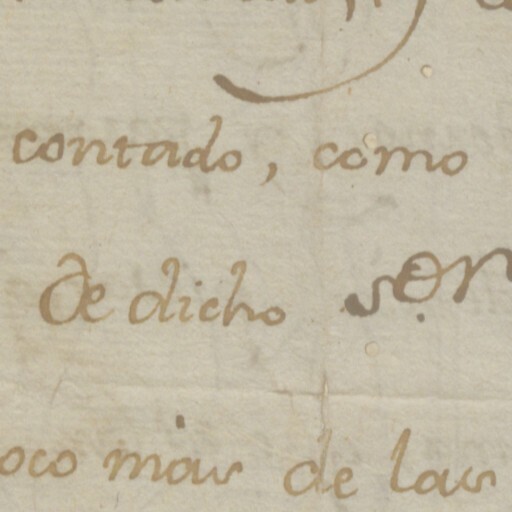 contado, como
de dicho
oco mas de las